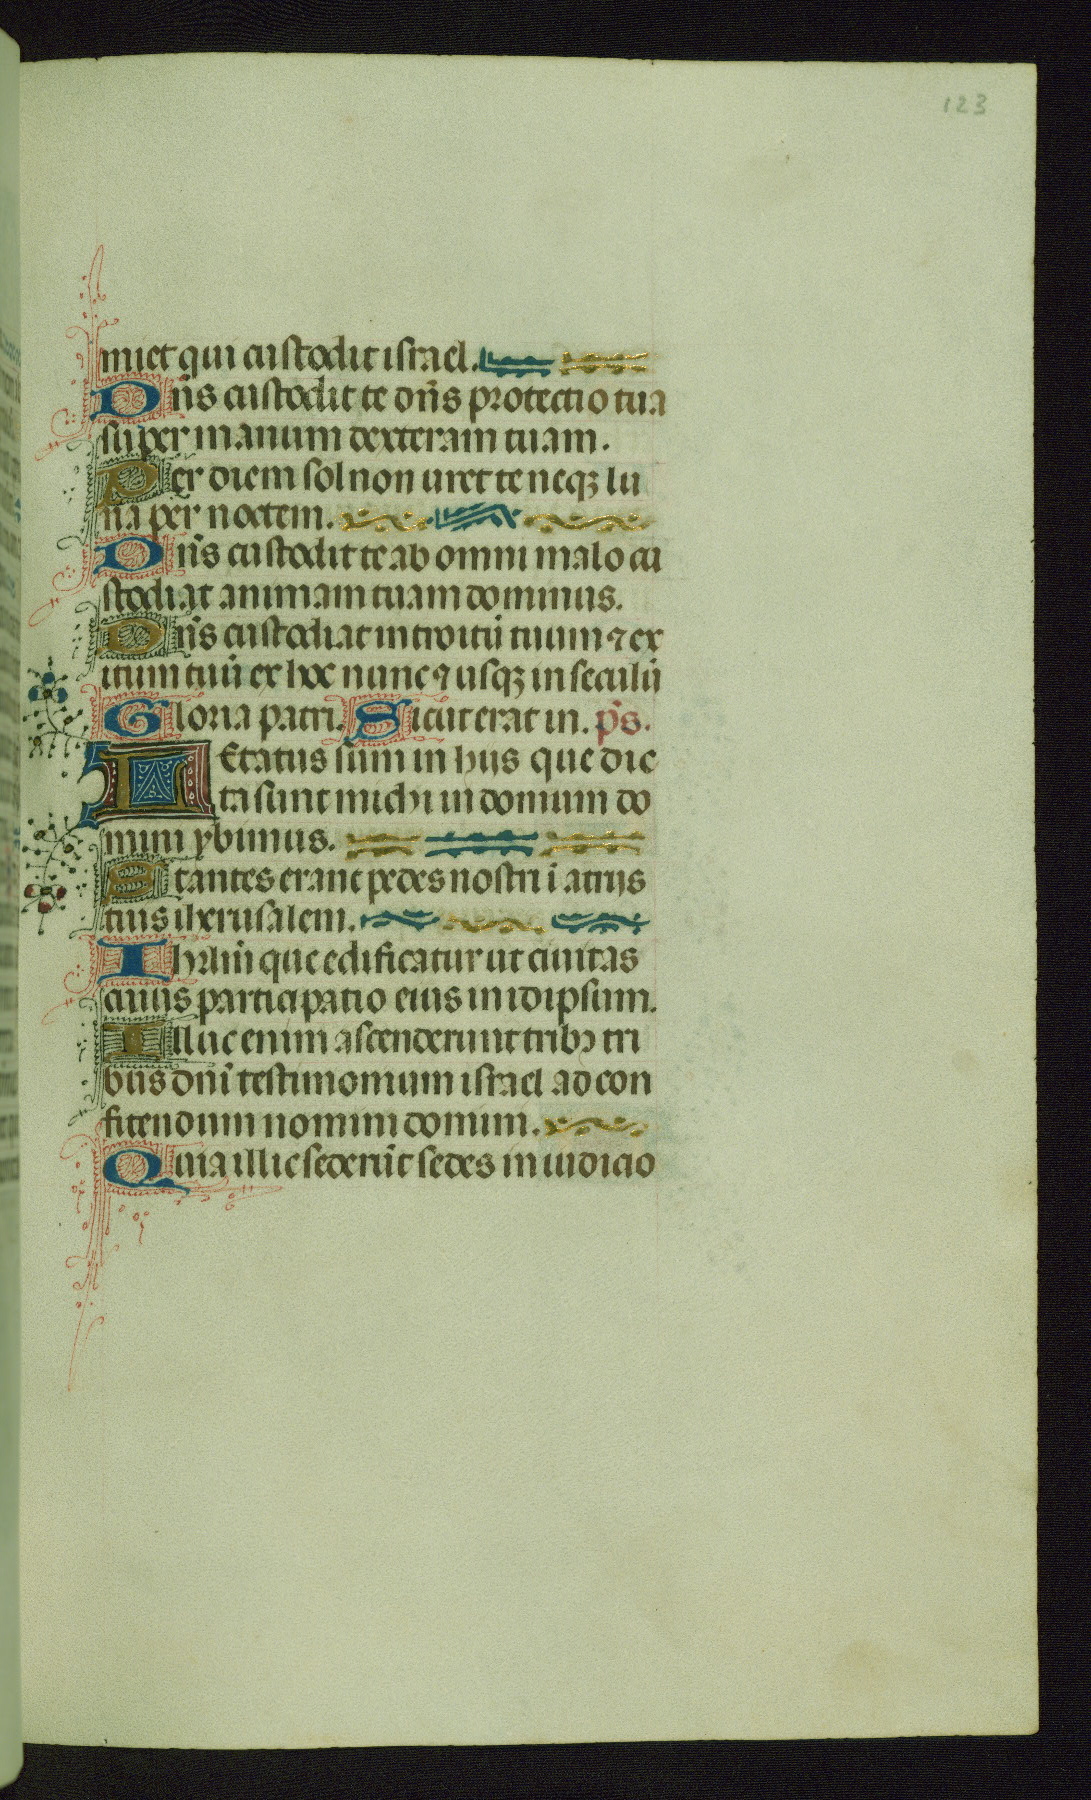 123
miet qui custodit israel.
Dn̄s custodit te dn̄s protectio tua
super manum dexteram tuam.
Per diem sol non uret te neqꝫ lu
na per noctem.
Dn̄s custodit te ab omni malo cu
stodiat animam tuam dominus.
Dn̄s custodiat introitū tuum ⁊ ex
itum tuū ex hoc nunc ⁊ usqꝫ in seculū
Gloria patri. Sicut erat in. p̄s.
LEtatus sum in hijs que dic
ta sunt michi in domum do
mini ybimus.
Stantes erant pedes nostri ī atrijs
tuis iherusalem.
Ihrl̄m que edificatur ut ciuitas
cuius participatio eius in idipsum.
Illuc enim ascenderunt tribꝫ tri
bus dn̄i testimonium israel ad con
fitendum nomini domini.
Quia illic sederūt sedes in iudicio